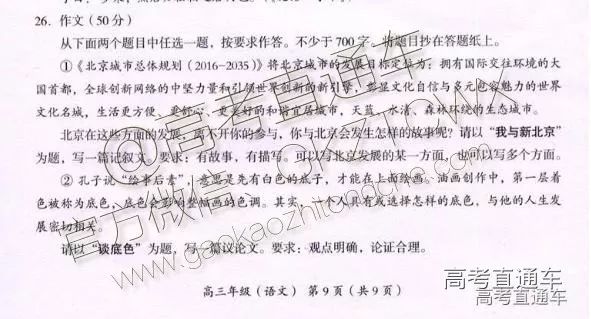 26. 作文（50 分）
从下面两个题目中任选一题，按要求作答。不少于 700 字。将题目抄在答题纸上。
①《北京城市总体规划（2016－2035）》将北京城市的发展目标定标为：拥有国际交往环境的大
国首都，全球创新网络的中坚力量和引领世界创新的新引擎，彰显文化自信与多元包容魅力的世界
文化名城，生活更方便、更舒心、更美好的和谐宜居城市，天蓝、水清、森林环绕的生态城市。
北京在这些方面的发展，离不开你的参与，你与北京会发生怎样的故事呢？请以“我与新北京”
为题，写一篇记叙文。要求：有故事，有描写。可以写北京发展的某一方面，也可以写多个方面。
② 孔子说“绘事后素”，意思是先有白色的底子，才能在上面绘画。油画创作中，第一层着
色被称为底色，底色会影响整幅画的色调。其实，一个人具有或选择怎样的底色，与他的人生发
展密切相关。
请以“谈底色”为题，写一篇议论文。要求：观点明确，论证合理。
高三年级（语文） 第 9 页（共 9 页）
@高考直通车
官方微信：GKZTCWX
www.gaokaozhitongche.com
高考直通车
高考直通车